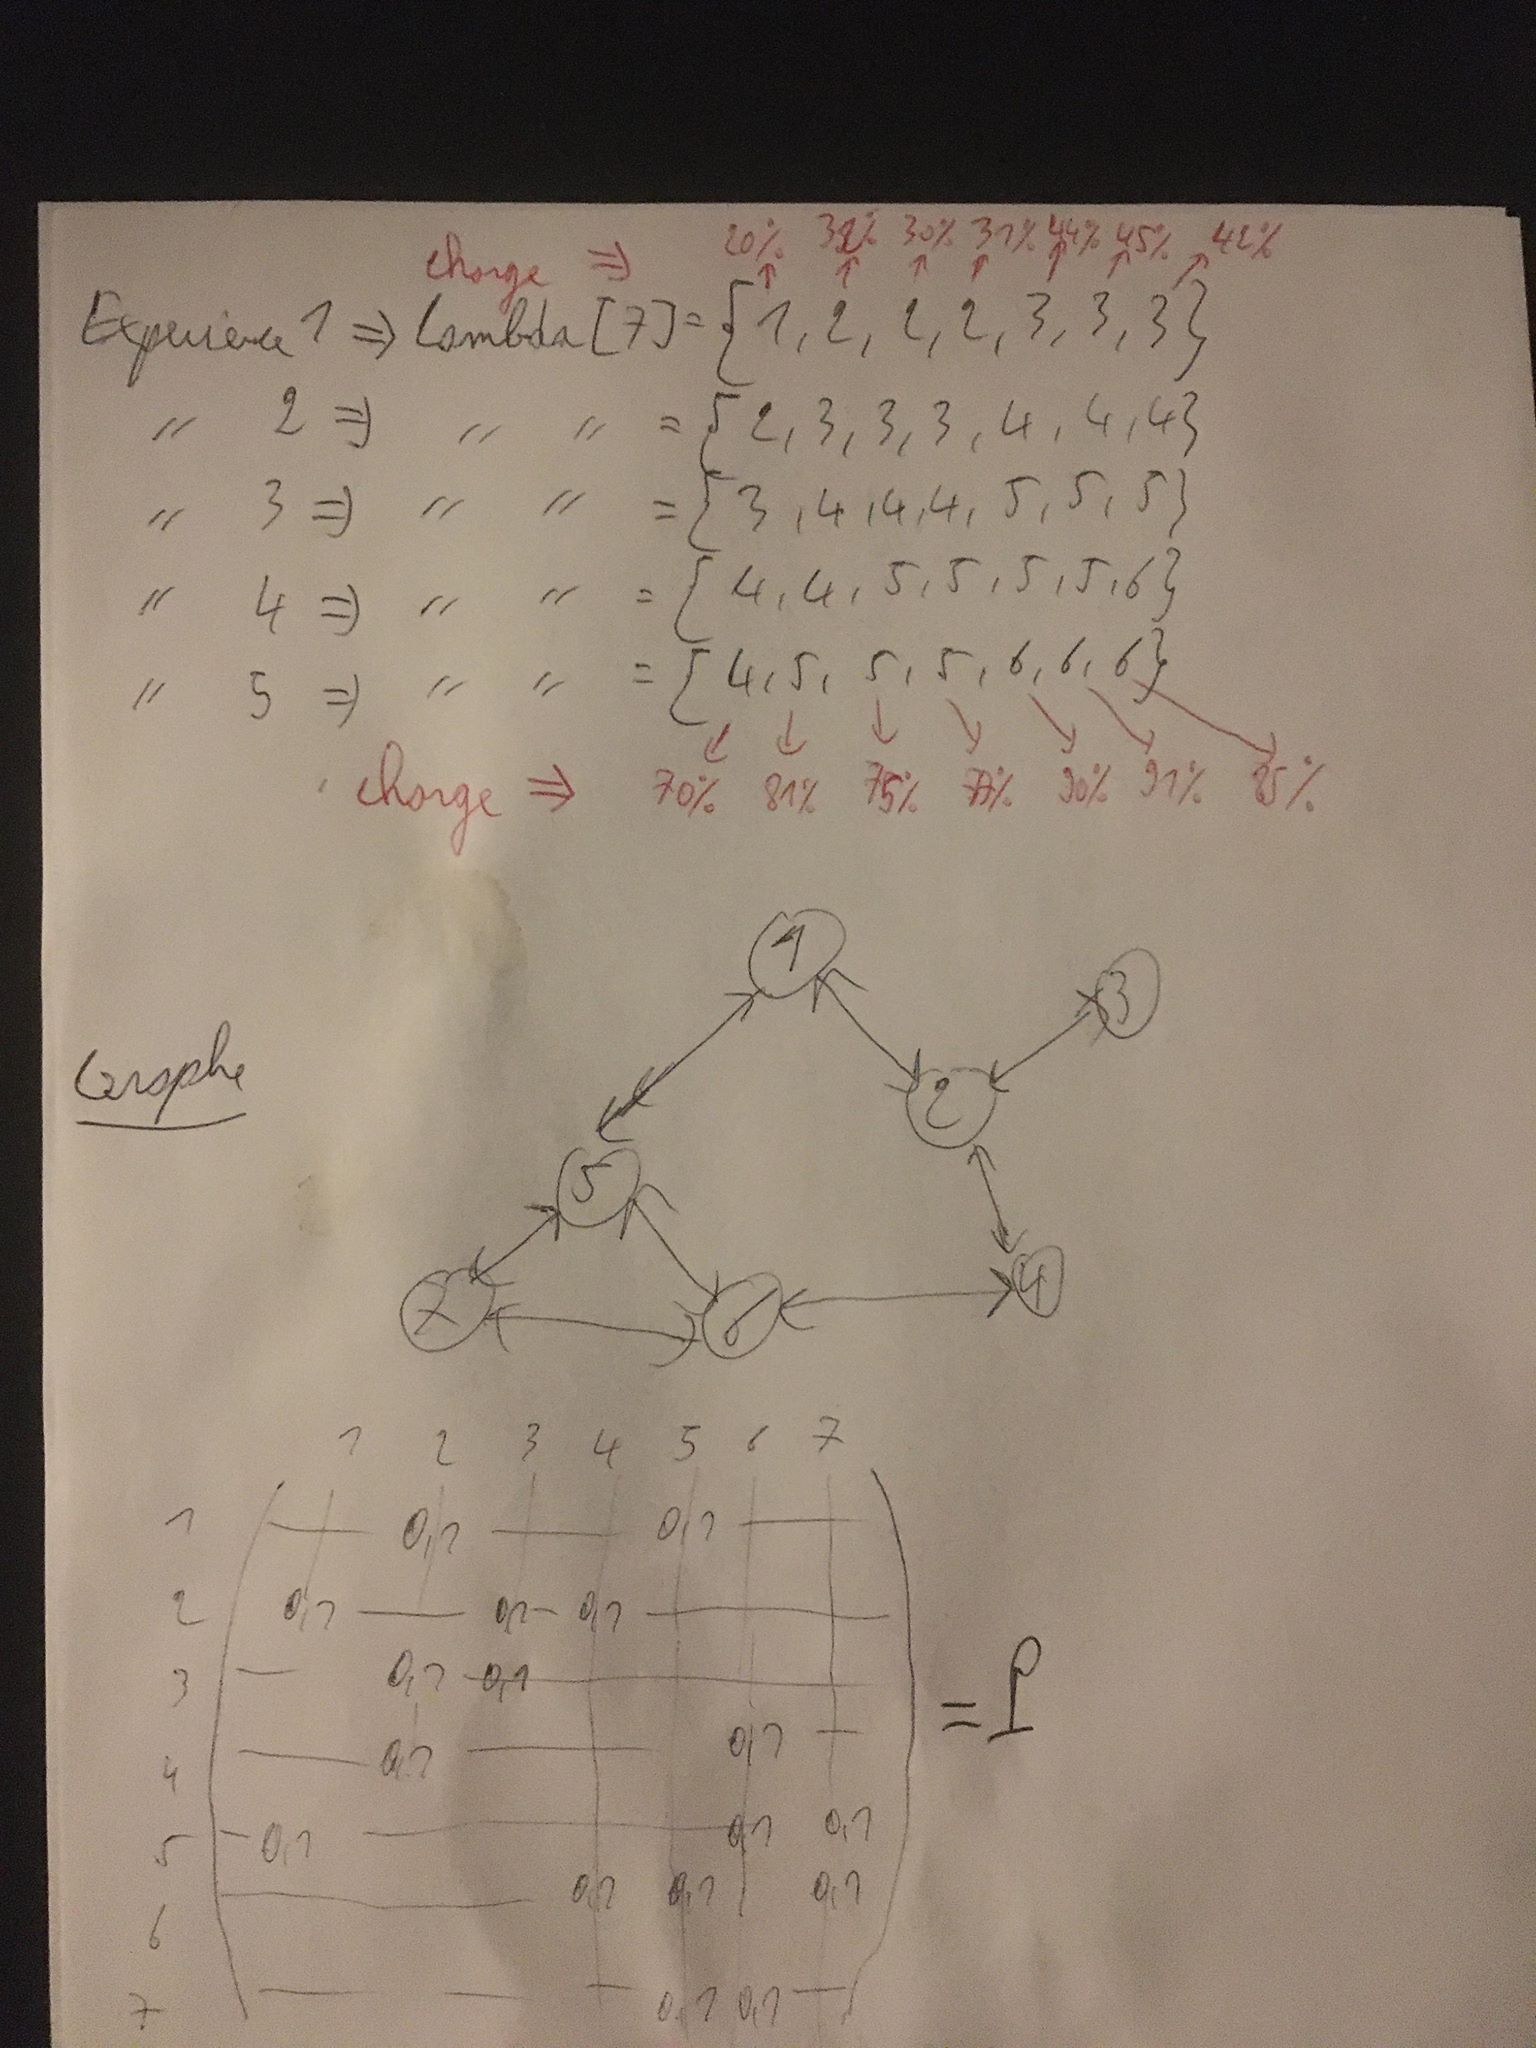 charge ⇒ 20% 32% 30% 31% 44% 45% 42%
Experience 1 ⇒ Lambda [7] = {1, 2, 2, 2, 3, 3, 3}
" 2 ⇒ " " = {2, 3, 3, 3, 4, 4, 4}
" 3 ⇒ " " = {3, 4, 4, 4, 5, 5, 5}
" 4 ⇒ " " = {4, 4, 5, 5, 5, 5, 6}
" 5 ⇒ " " = {4, 5, 5, 5, 6, 6, 6}
charge ⇒ 70% 81% 75% 77% 90% 91% 85%
1
3
Graphe
2
5
7 6 4
1 2 3 4 5 6 7
1 0,1 0,1
2 0,1 0,1 0,1
3 0,1 0,1
= P
4 0,1 0,1
5 0,1 0,1 0,1
6 0,1 0,1 0,1
7 0,1 0,1